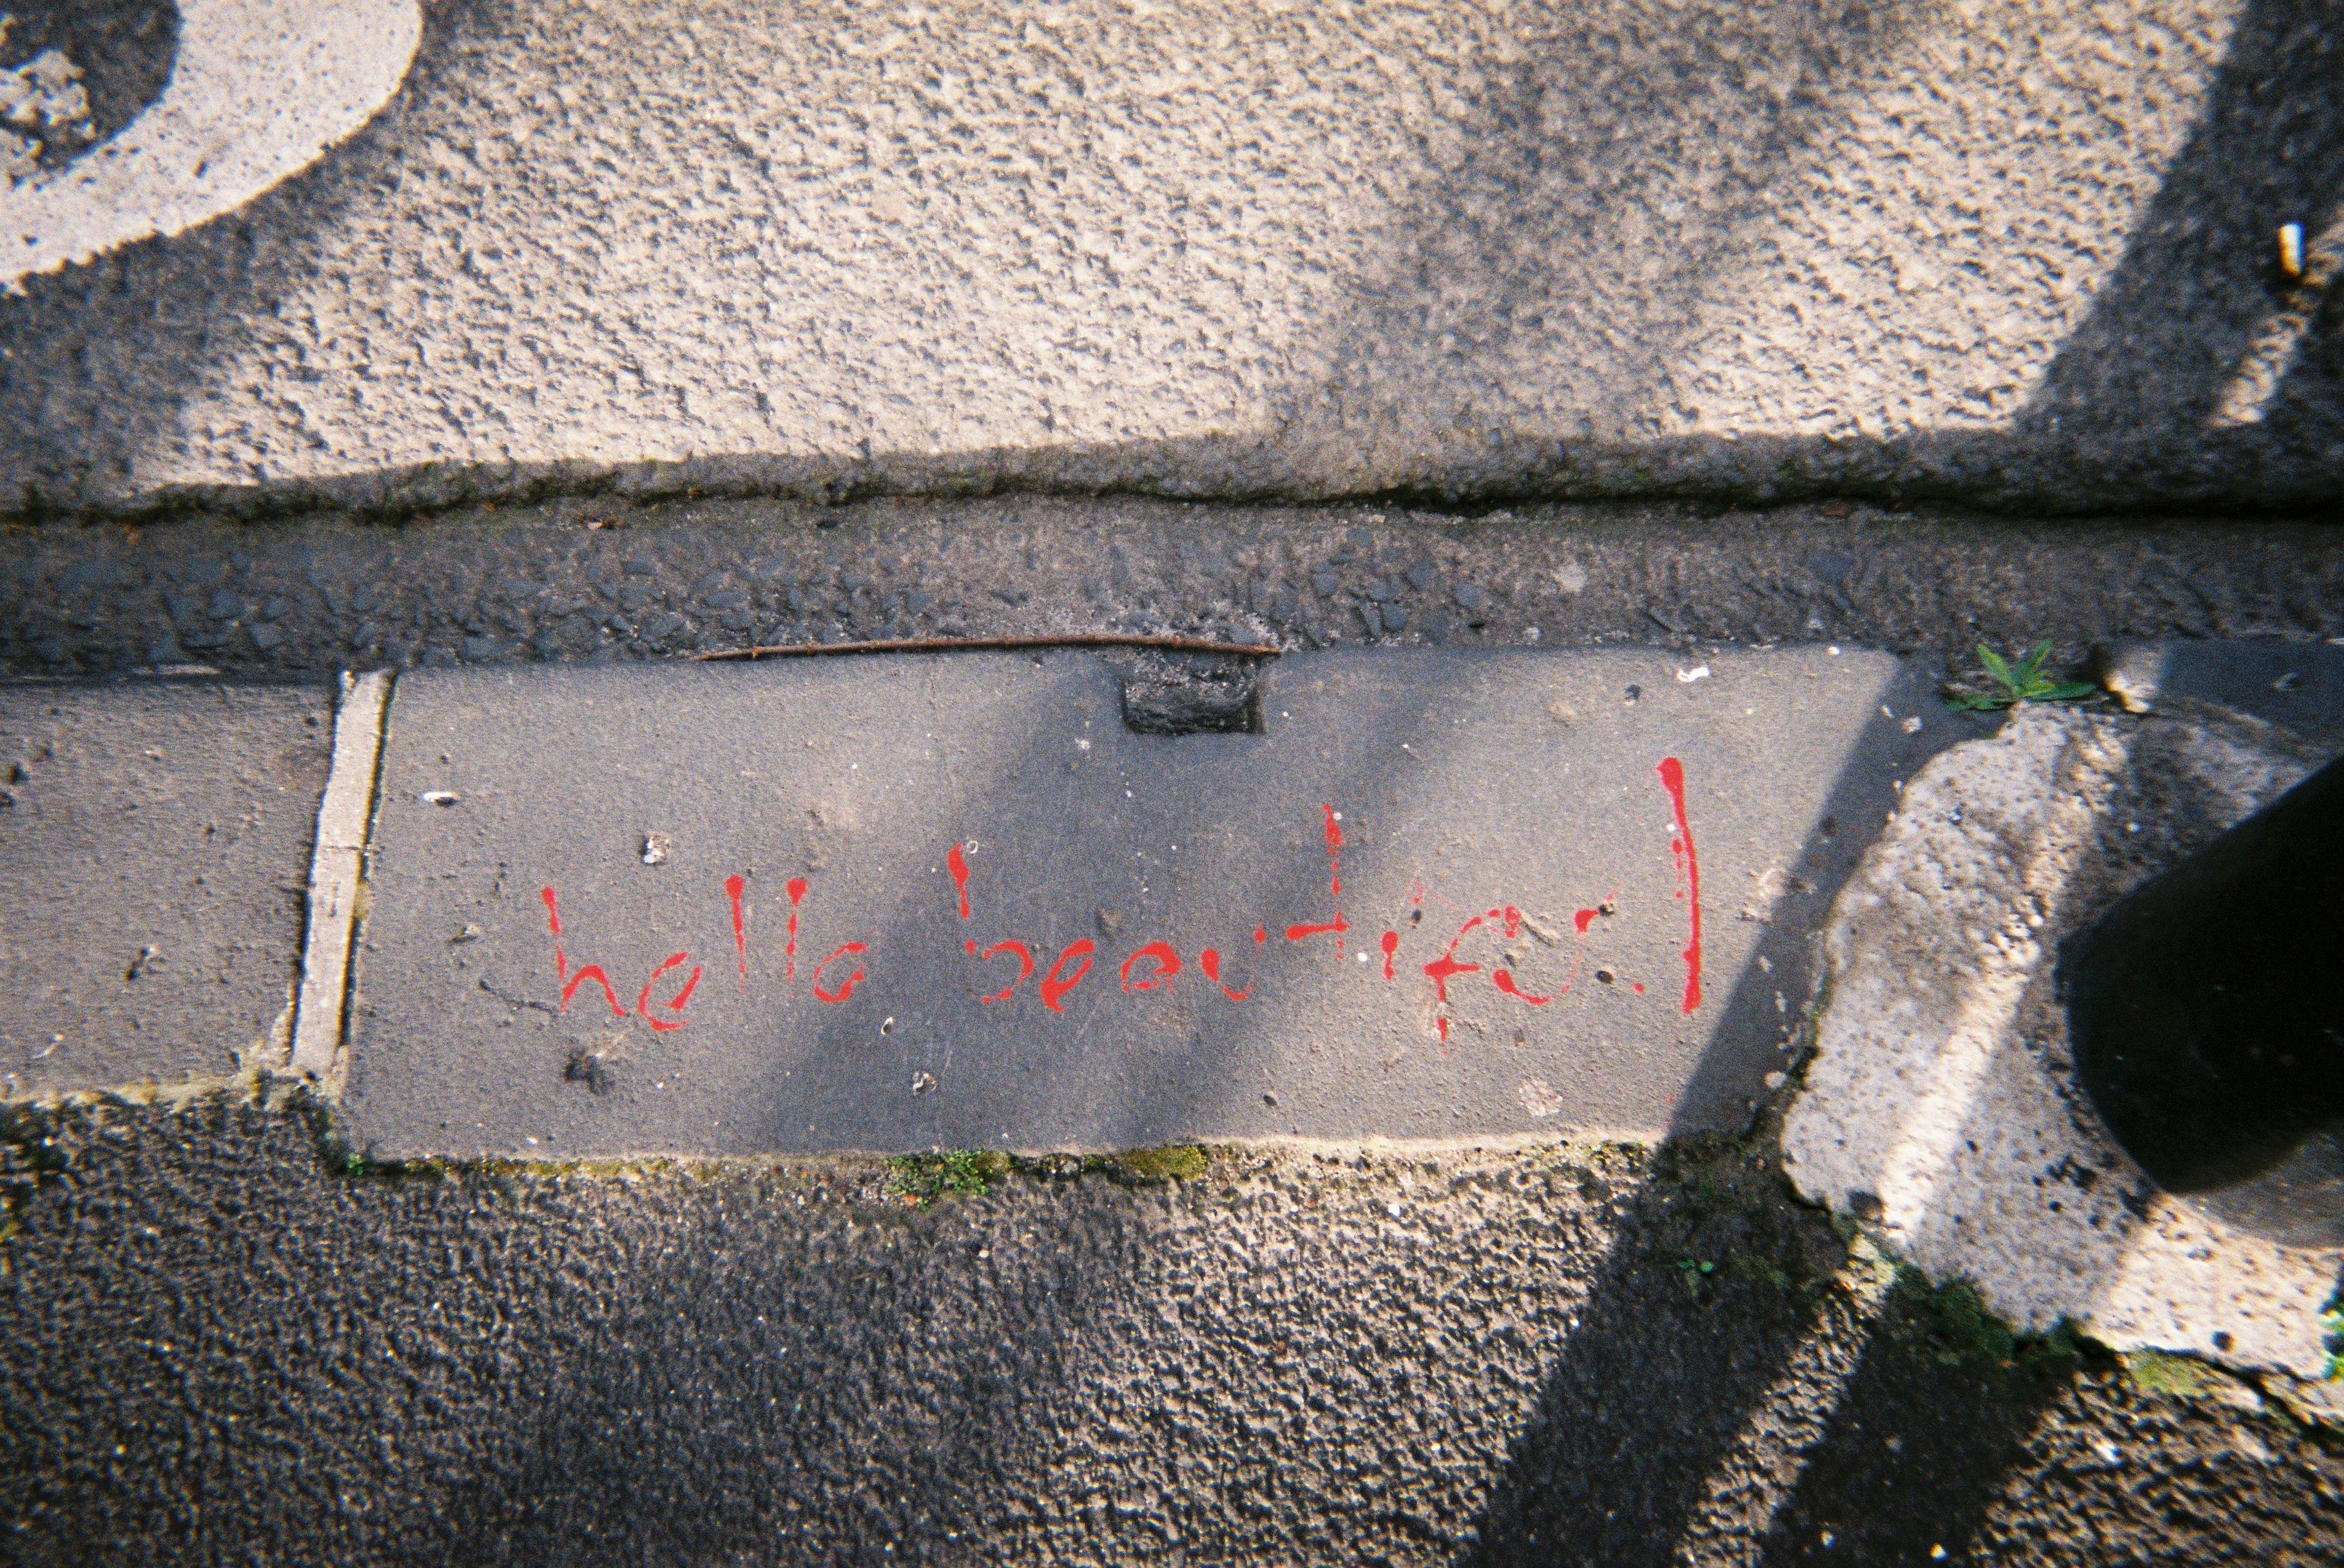 hello beautiful